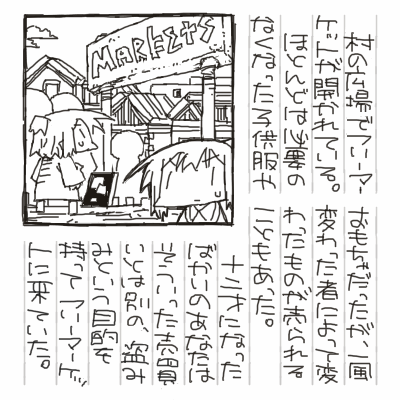 MARKETS
村の広場でフリーマー
ケットが開かれている。
ほとんどは必要の
なくなった子供服や
おもちゃだったが、一風
変わった者によって変
わったものが売られる
こともあった。
十二才になった
ばかりのあなたは
そういった売買
いとは別の、盗み
みという目的を
持ってフリーマーケッ
トに来ていた。